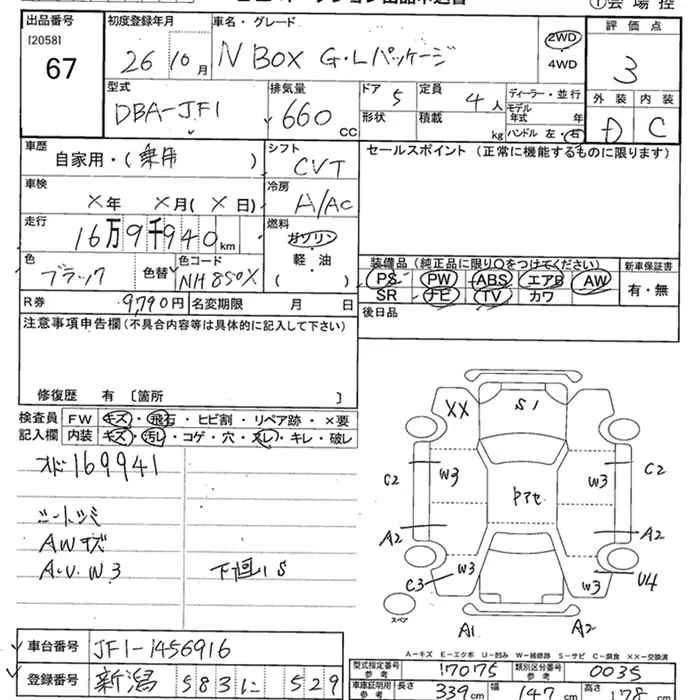 出品番号
[2058]
67
初度登録年月
26 10月
車名・グレード
N BOX G・Lパッケージ
2WD
4WD
評価点
3
型式
DBA-JF1
排気量
660 CC
ドア 5
定員 4人
形状
積載 kg
ディーラー・並行
モデル年式 年
ハンドル 左・右
外装 内装
D C
車歴
自家用・(乗用)
シフト
CVT
セールスポイント (正常に機能するものに限ります)
車検
×年 ×月(×日)
冷房
A/AC
走行
16万9千940km
燃料
ガソリン
軽・油
( )
色
ブラック
色替
色コード
NH850X
装備品 (純正品に限り○をつけてください)
PS PW ABS エアB AW
SR ナビ TV カワ
新車保証書
有・無
R券 9,790円
名変期限 月 日
後日品
注意事項申告欄 (不具合内容等は具体的に記入して下さい)
修復歴 有 [箇所 ]
検査員記入欄
FW キズ・飛石・ヒビ割・リペア跡・×要
内装 キズ・汚レ・コゲ・穴・スレ・キレ・破レ
169941
AWキズ
W3
下廻りS
XX
S1
C2
W3
W3
C2
A2
A2
W3
C3
W3
U4
スペア
A1
A2
A-キズ E-エクボ U-凹み W-補修跡 S-サビ C-腐食 ××-交換済
車台番号 JF1-1456916
登録番号 新潟 583 に 529
型式指定番号 参考 17075
類別区分番号 参考 0035
車庫証明用 参考 長さ 339cm 幅 147cm 高さ 178cm